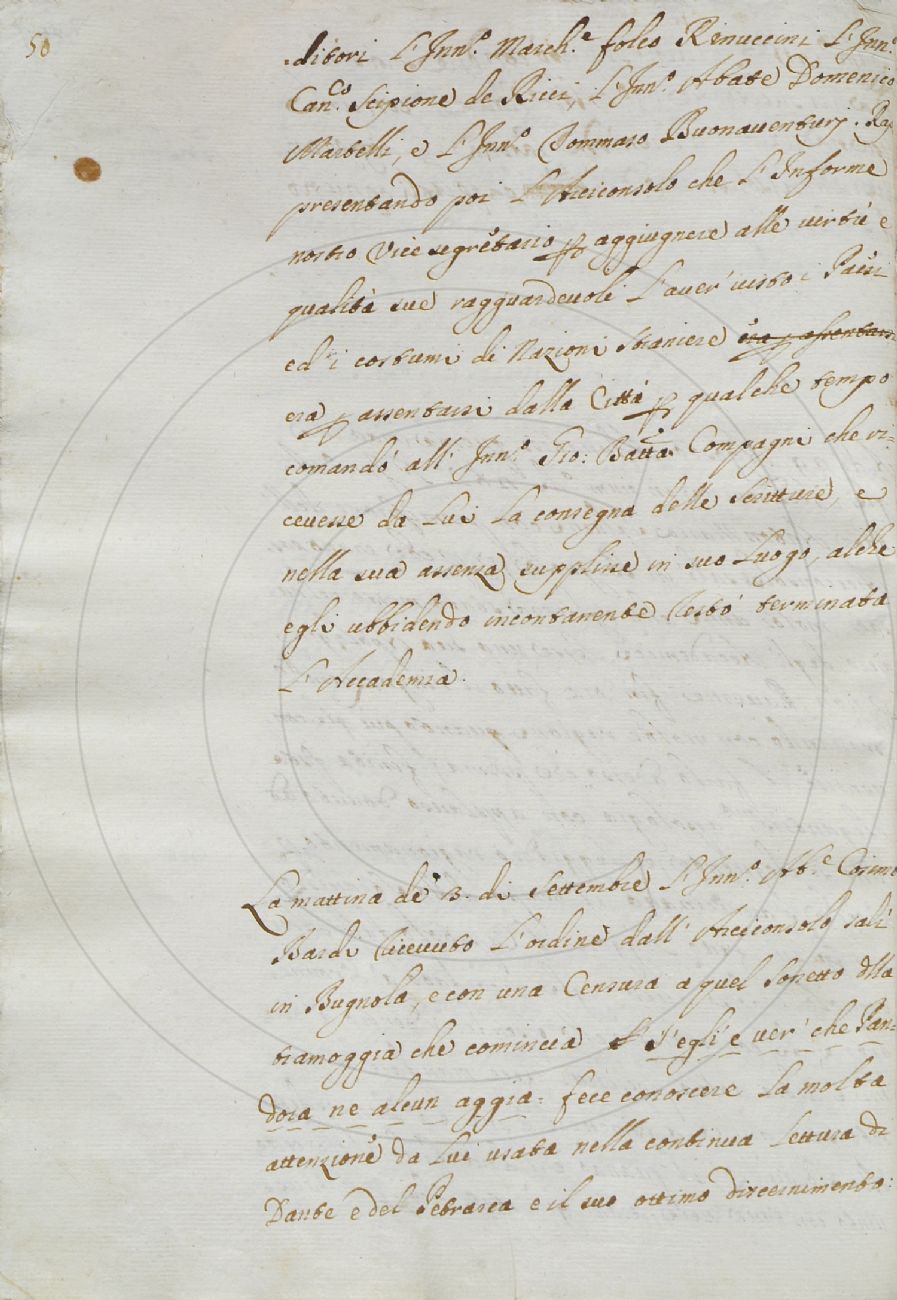 50
ditori L'Inn.º March.e folco Rinuccini L'Inn.º
Can.co Scipione de Ricci L'Inn.º Abate Domenico
Martelli, e L'Inn.º Tommaso Buonaventurj. Ra
presentando poi L'Arciconsolo che L'Informe
nostro Vice segretario p aggiugnere alle virtù e
qualità sue ragguardevoli L'aver' visto i Paesi
ed i costumi di Nazioni straniere era p assentarsi
era p assentarsi dalla Città p qualche tempo
comandò all' Inn.º Gio: Batta Compagni che ri-
cevesse da Lui La consegna delle scritture, e
nella sua assenza supplire in suo Luogo, alche
egli ubbidendo incontanente restò terminata
L'Accademia.
La mattina de' 3. di Settembre L'Inn.º Ab.e Cosimo
Bardi ricevuto L'ordine dall' Arciconsolo salì
in Bugnola, e con una Censura a quel Sonetto dlla
tramoggia che comincia S'egli e ver' che Pan=
dora ne alcun aggia = fece conoscere La molta
attenzione da Lui usata nella continua Lettura di
Dante e del Petrarca e il suo ottimo discernimento: